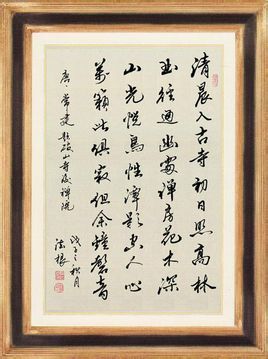 清晨入古寺初日照高林
曲径通幽處禅房花木深
山光悦鳥性潭影空人心
萬籟此俱寂但余鐘磬音
唐、常建題破山寺後禅院
戊子之秋月